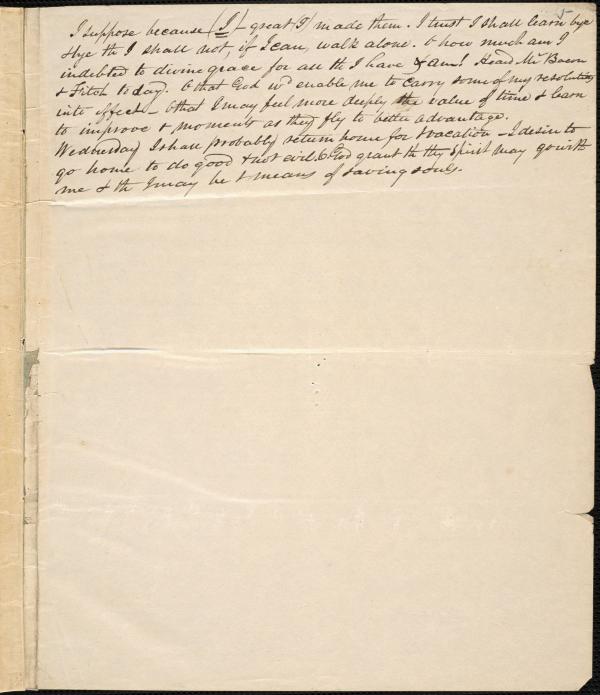 5
I suppose because (I) - great (I) made them. I trust I shall learn bye
& bye th I shall not, if I can, walk alone. O how much am I
indebted to divine grace for all th I have & am! Heard Mr Bacon
& Fitch to day. O that God wd enable me to carry some of my resolutions
into effect - O that I may feel more deeply the value of time & learn
to improve t moments as they fly to better advantage.
Wednesday I shall probably return home for t vacation - I desire to
go home to do good & not evil. O God grant th thy Spirit may go with
me & th I may be t means of saving souls.